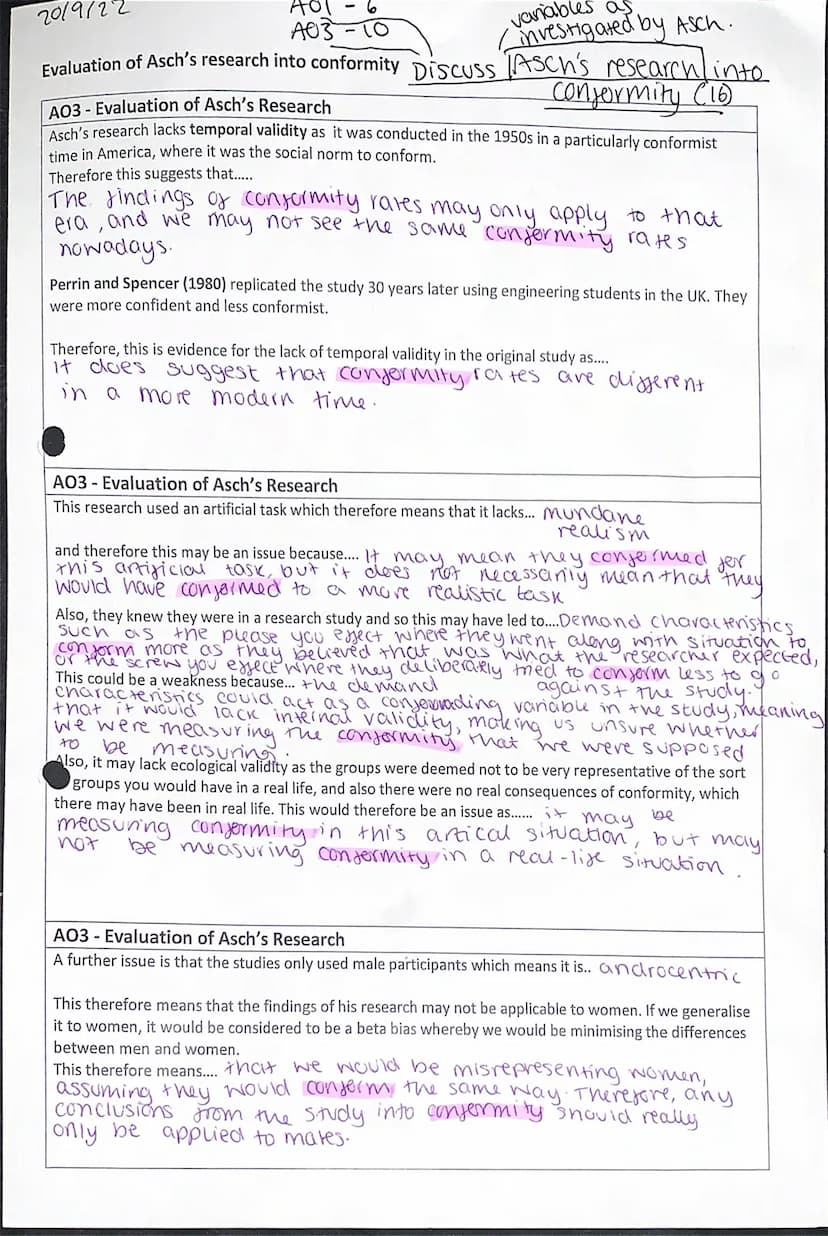 20/9/22
AO1 - 6
AO3 - 10
variables as
investigated by Asch.
Evaluation of Asch's research into conformity
Discuss Asch's research into
conformity (16)
AO3 - Evaluation of Asch's Research
Asch's research lacks temporal validity as it was conducted in the 1950s in a particularly conformist
time in America, where it was the social norm to conform.
Therefore this suggests that.....
The findings of conformity rates may only apply to that
era, and we may not see the same conformity rates
nowadays.
Perrin and Spencer (1980) replicated the study 30 years later using engineering students in the UK. They
were more confident and less conformist.
Therefore, this is evidence for the lack of temporal validity in the original study as....
It does suggest that conformity rates are different
in a more modern time.
AO3 - Evaluation of Asch's Research
This research used an artificial task which therefore means that it lacks... mundane
realism
and therefore this may be an issue because.... It may mean they conformed for
this artificial task, but it does not necessarily mean that they
would have conformed to a more realistic task
Also, they knew they were in a research study and so this may have led to....Demand characteristics
such as the please you effect where they went along with situation to
conform more as they believed that was what the researcher expected,
or the screw you effect where they deliberately tried to conform less to go
against the study.
This could be a weakness because... the demand
characteristics could act as a confounding variable in the study, meaning
that it would lack internal validity, making us unsure whether
we were measuring the conformity that we were supposed
to be measuring.
Also, it may lack ecological validity as the groups were deemed not to be very representative of the sort
groups you would have in a real life, and also there were no real consequences of conformity, which
there may have been in real life. This would therefore be an issue as...... it may be
measuring conformity in this artical situation, but may
not be measuring conformity in a real-life situation.
AO3 - Evaluation of Asch's Research
A further issue is that the studies only used male participants which means it is.. androcentric
This therefore means that the findings of his research may not be applicable to women. If we generalise
it to women, it would be considered to be a beta bias whereby we would be minimising the differences
between men and women.
This therefore means.... that we would be misrepresenting women,
assuming they would conform the same way. Therefore, any
conclusions from the study into conformity should really
only be applied to males.